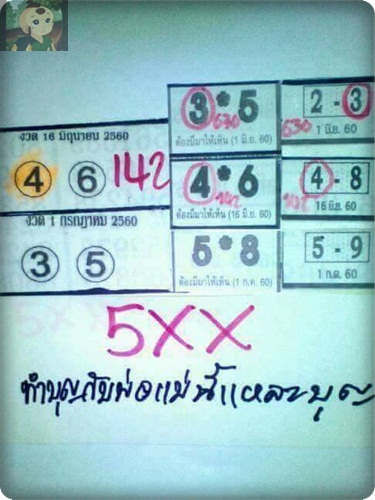 3*5
630
ต้องมีมาให้เห็น (1 มิ.ย. 60)
2-3
630
1 มิ.ย. 60
งวด 16 มิถุนายน 2560
4 6
142
4*6
142
ต้องมีมาให้เห็น (16 มิ.ย. 60)
4-8
142
16 มิ.ย. 60
งวด 1 กรกฎาคม 2560
3 5
5*8
ต้องมีมาให้เห็น (1 ก.ค. 60)
5-9
1 ก.ค. 60
5XX
ทำบุญกับพ่อแม่นี้แหละบุญ